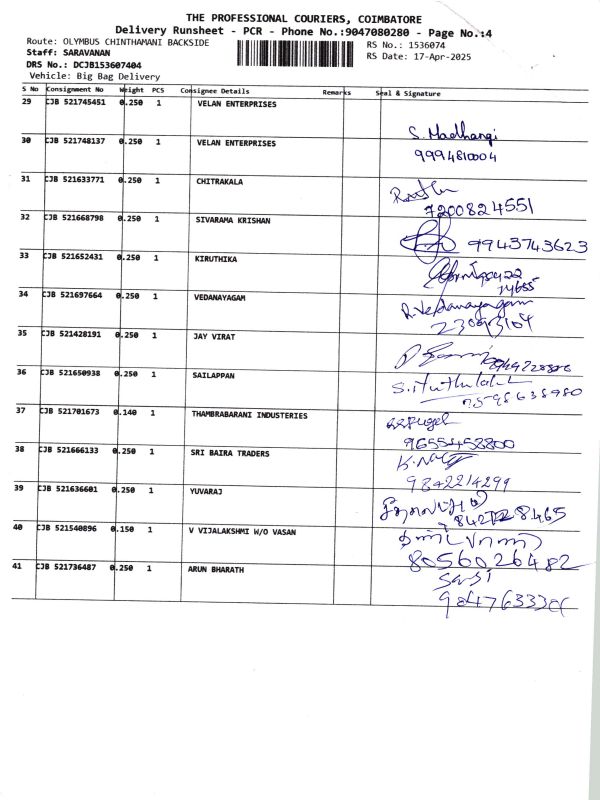 THE PROFESSIONAL COURIERS, COIMBATORE
Delivery Runsheet - PCR - Phone No.:9047080280 - Page No.:4
Route: OLYMBUS CHINTHAMANI BACKSIDE
RS No.: 1536074
Staff: SARAVANAN
RS Date: 17-Apr-2025
DRS No.: DCJB153607404
Vehicle: Big Bag Delivery
S No Consignment No Weight PCS Consignee Details Remarks Seal & Signature
29 CJB 521745451 0.250 1 VELAN ENTERPRISES
S. Madhangi
30 CJB 521748137 0.250 1 VELAN ENTERPRISES
9994810004
31 CJB 521633771 0.250 1 CHITRAKALA
7200824551
32 CJB 521668798 0.250 1 SIVARAMA KRISHAN
9943743623
33 CJB 521652431 0.250 1 KIRUTHIKA
34 CJB 521697664 0.250 1 VEDANAYAGAM
R. Vedanayagam
35 CJB 521428191 0.250 1 JAY VIRAT
36 CJB 521650938 0.250 1 SAILAPPAN
37 CJB 521701673 0.140 1 THAMBRABARANI INDUSTERIES
9655452800
38 CJB 521666133 0.250 1 SRI BAIRA TRADERS
9842214299
39 CJB 521636601 0.250 1 YUVARAJ
40 CJB 521540896 0.150 1 V VIJALAKSHMI W/O VASAN
8056026482
41 CJB 521736487 0.250 1 ARUN BHARATH